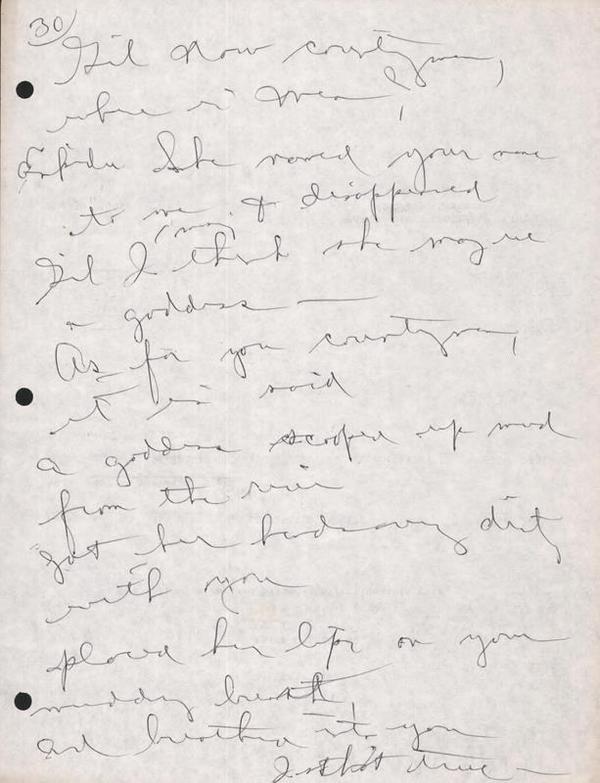 30
Gil Now countryman,
where is Mean,?
Enkidu She named your name
to me & disappeared
(may)
Gil I think she may be
a goddess —
As for you countryman,
it is said
a goddess scooped up mud
from the river
got her hands very dirty
with you
placed her lips on your
muddy breath,
and breathed into you
Is that true —